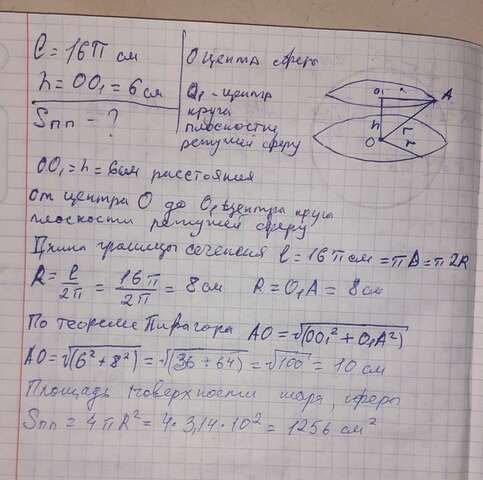 ℓ = 16π см
h = OO₁ = 6 см
Sпп - ?
О центр сферы
O₁ - центр
круга
плоскости
режущей сферу
O₁
A
h
r
O
OO₁ = h = 6 см расстояния
от центра О до O₁ центра круга
плоскости режущей сферу
Длина границы сечения ℓ = 16π см = πD = π2R
R = ℓ/2π = 16π/2π = 8 см R = O₁A = 8 см
По теореме Пифагора AO = √(OO₁² + O₁A²)
AO = √(6² + 8²) = √(36 + 64) = √100 = 10 см
Площадь поверхности шара, сферы
Sпп = 4πR² = 4·3,14·10² = 1256 см²